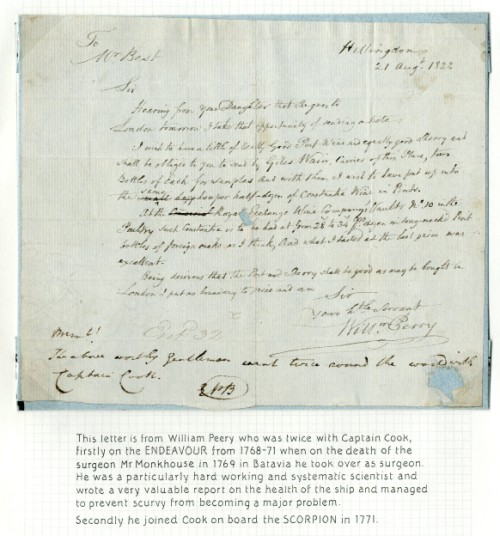 To
Mr Best
Hillingdon
21 Augt. 1822
Sir
Hearing from your Daughter that she goes to
London tomorrow I take that opportunity of sending a note
I wish to have a little of really Good Port Wine and equally good Sherry and
shall be obliged to you to send by Giles Wain, Carrier of this Place, two
Bottles of each for samples and with them I wish to have put up into
the same hamper half dozen of Constantia Wine in Pints.
At the Royal Exchange Wine Company Vaults No. 10 in the
Poultry such Constantia is to be had at from 28 to 34 / dozen in long necked Pint
bottles of foreign make as I think, and what I tasted at the last price was
excellent.
Being desirous that the Port and Sherry shall be good as may be bought in
London I put no boundary to price and am
Sir
Your Servant
Willm Perry
The above worthy Gentleman went twice round the world with
Captain Cook.
This letter is from William Peery who was twice with Captain Cook,
firstly on the ENDEAVOUR from 1768-71 when on the death of the
surgeon Mr Monkhouse in 1769 in Batavia he took over as surgeon.
He was a particularly hard working and systematic scientist and
wrote a very valuable report on the health of the ship and managed
to prevent scurvy from becoming a major problem.
Secondly he joined Cook on board the SCORPION in 1771.